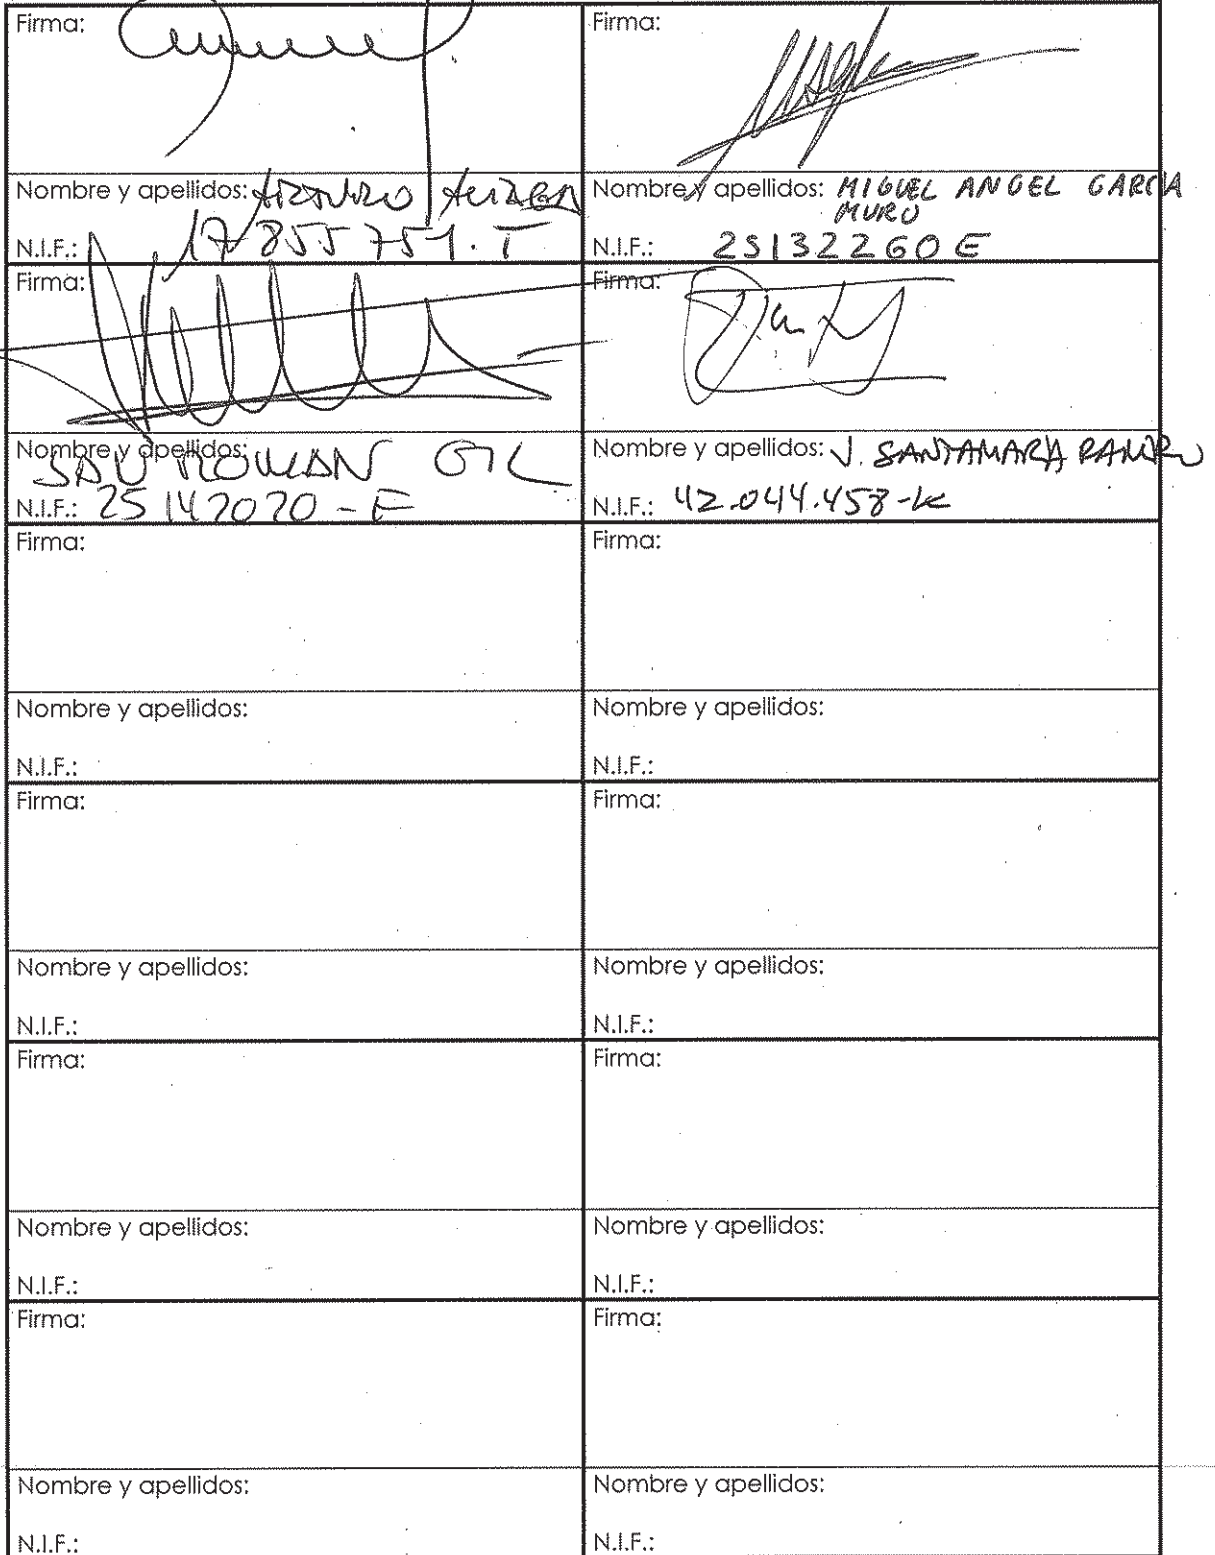 Firma:
Firma:
Nombre y apellidos:
Nombre y apellidos: MIGUEL ANGEL GARCIA
MURO
N.I.F.: 17855751.T
N.I.F.: 25132260E
Firma:
Firma:
Nombre y apellidos:
SAN ROMAN GIL
Nombre y apellidos: J. SANTAMARIA
N.I.F.: 25147070-E
N.I.F.: 42.044.458-K
Firma:
Firma:
Nombre y apellidos:
Nombre y apellidos:
N.I.F.:
N.I.F.:
Firma:
Firma:
Nombre y apellidos:
Nombre y apellidos:
N.I.F.:
N.I.F.:
Firma:
Firma:
Nombre y apellidos:
Nombre y apellidos:
N.I.F.:
N.I.F.:
Firma:
Firma:
Nombre y apellidos:
Nombre y apellidos:
N.I.F.:
N.I.F.: